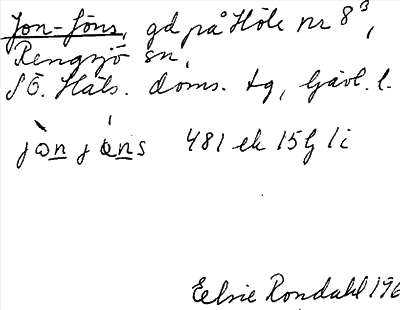 Jon-Jöns, gd på Höle nr 8³,
Rengsjö sn,
SÖ. Häls. doms. tg, Gävl. l.
jòn jöns 481 ek 15 G 1 i
Eelsie Rondahl 196